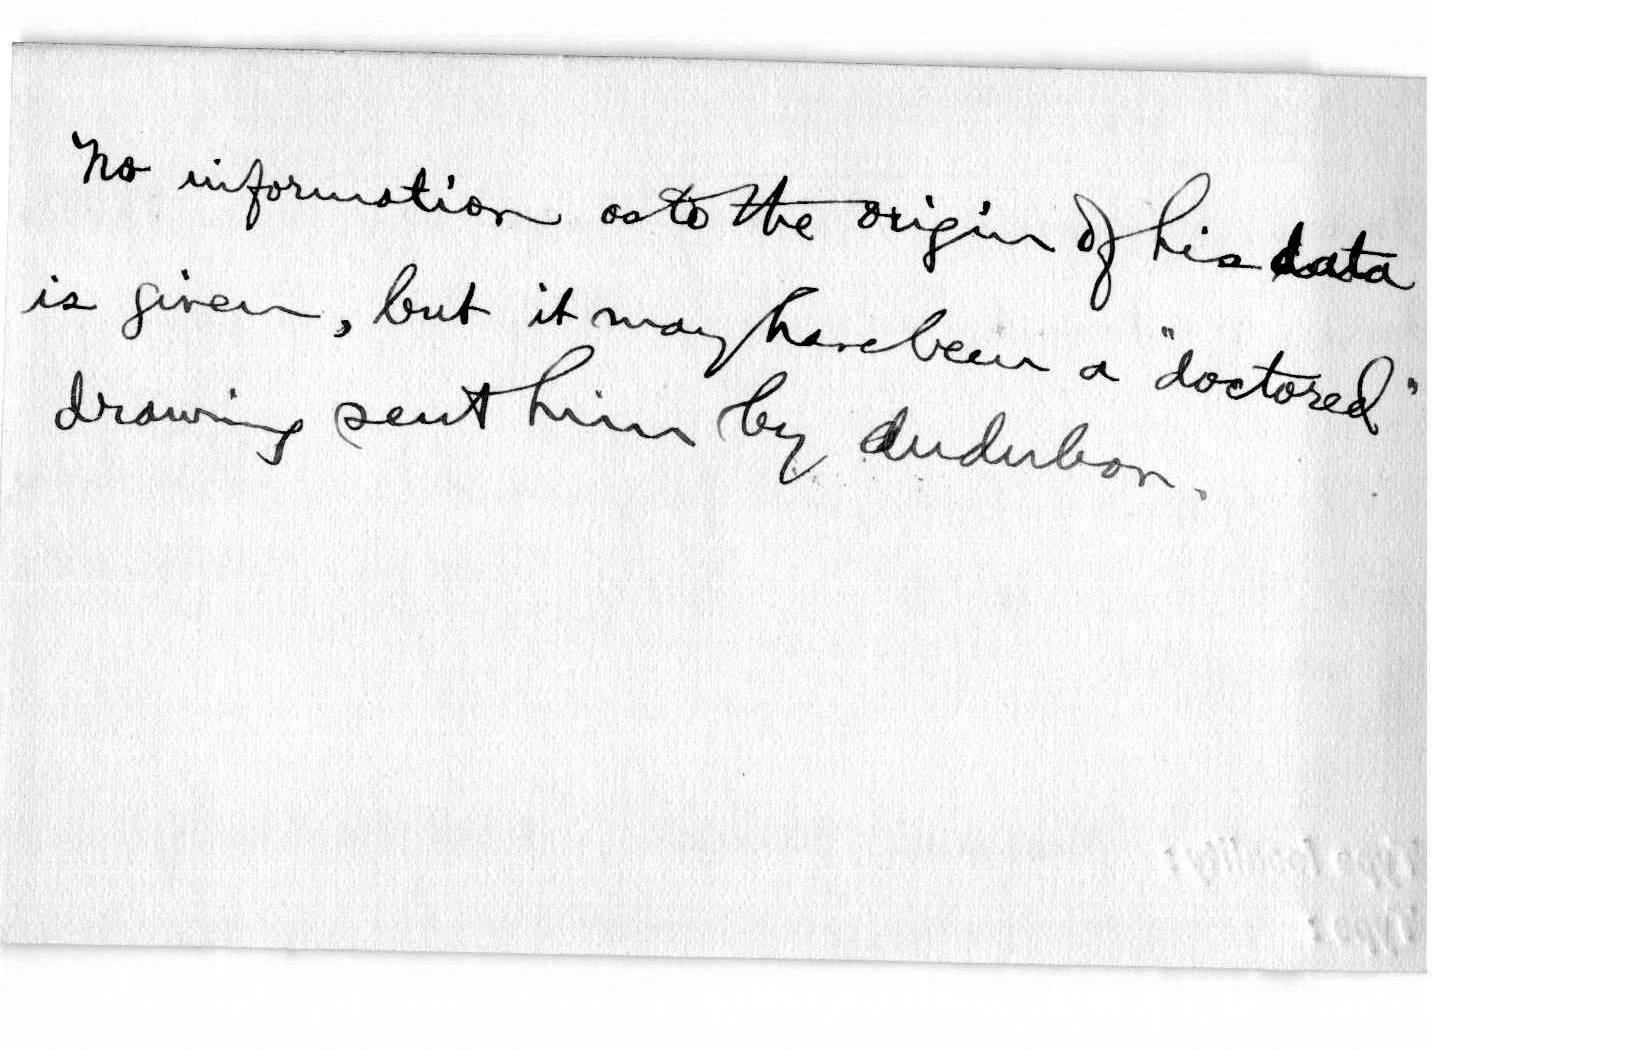 No information as to the origin of his data
is given, but it may have been a "doctored"
drawing sent him by Audubon.
Type locality:
Type: